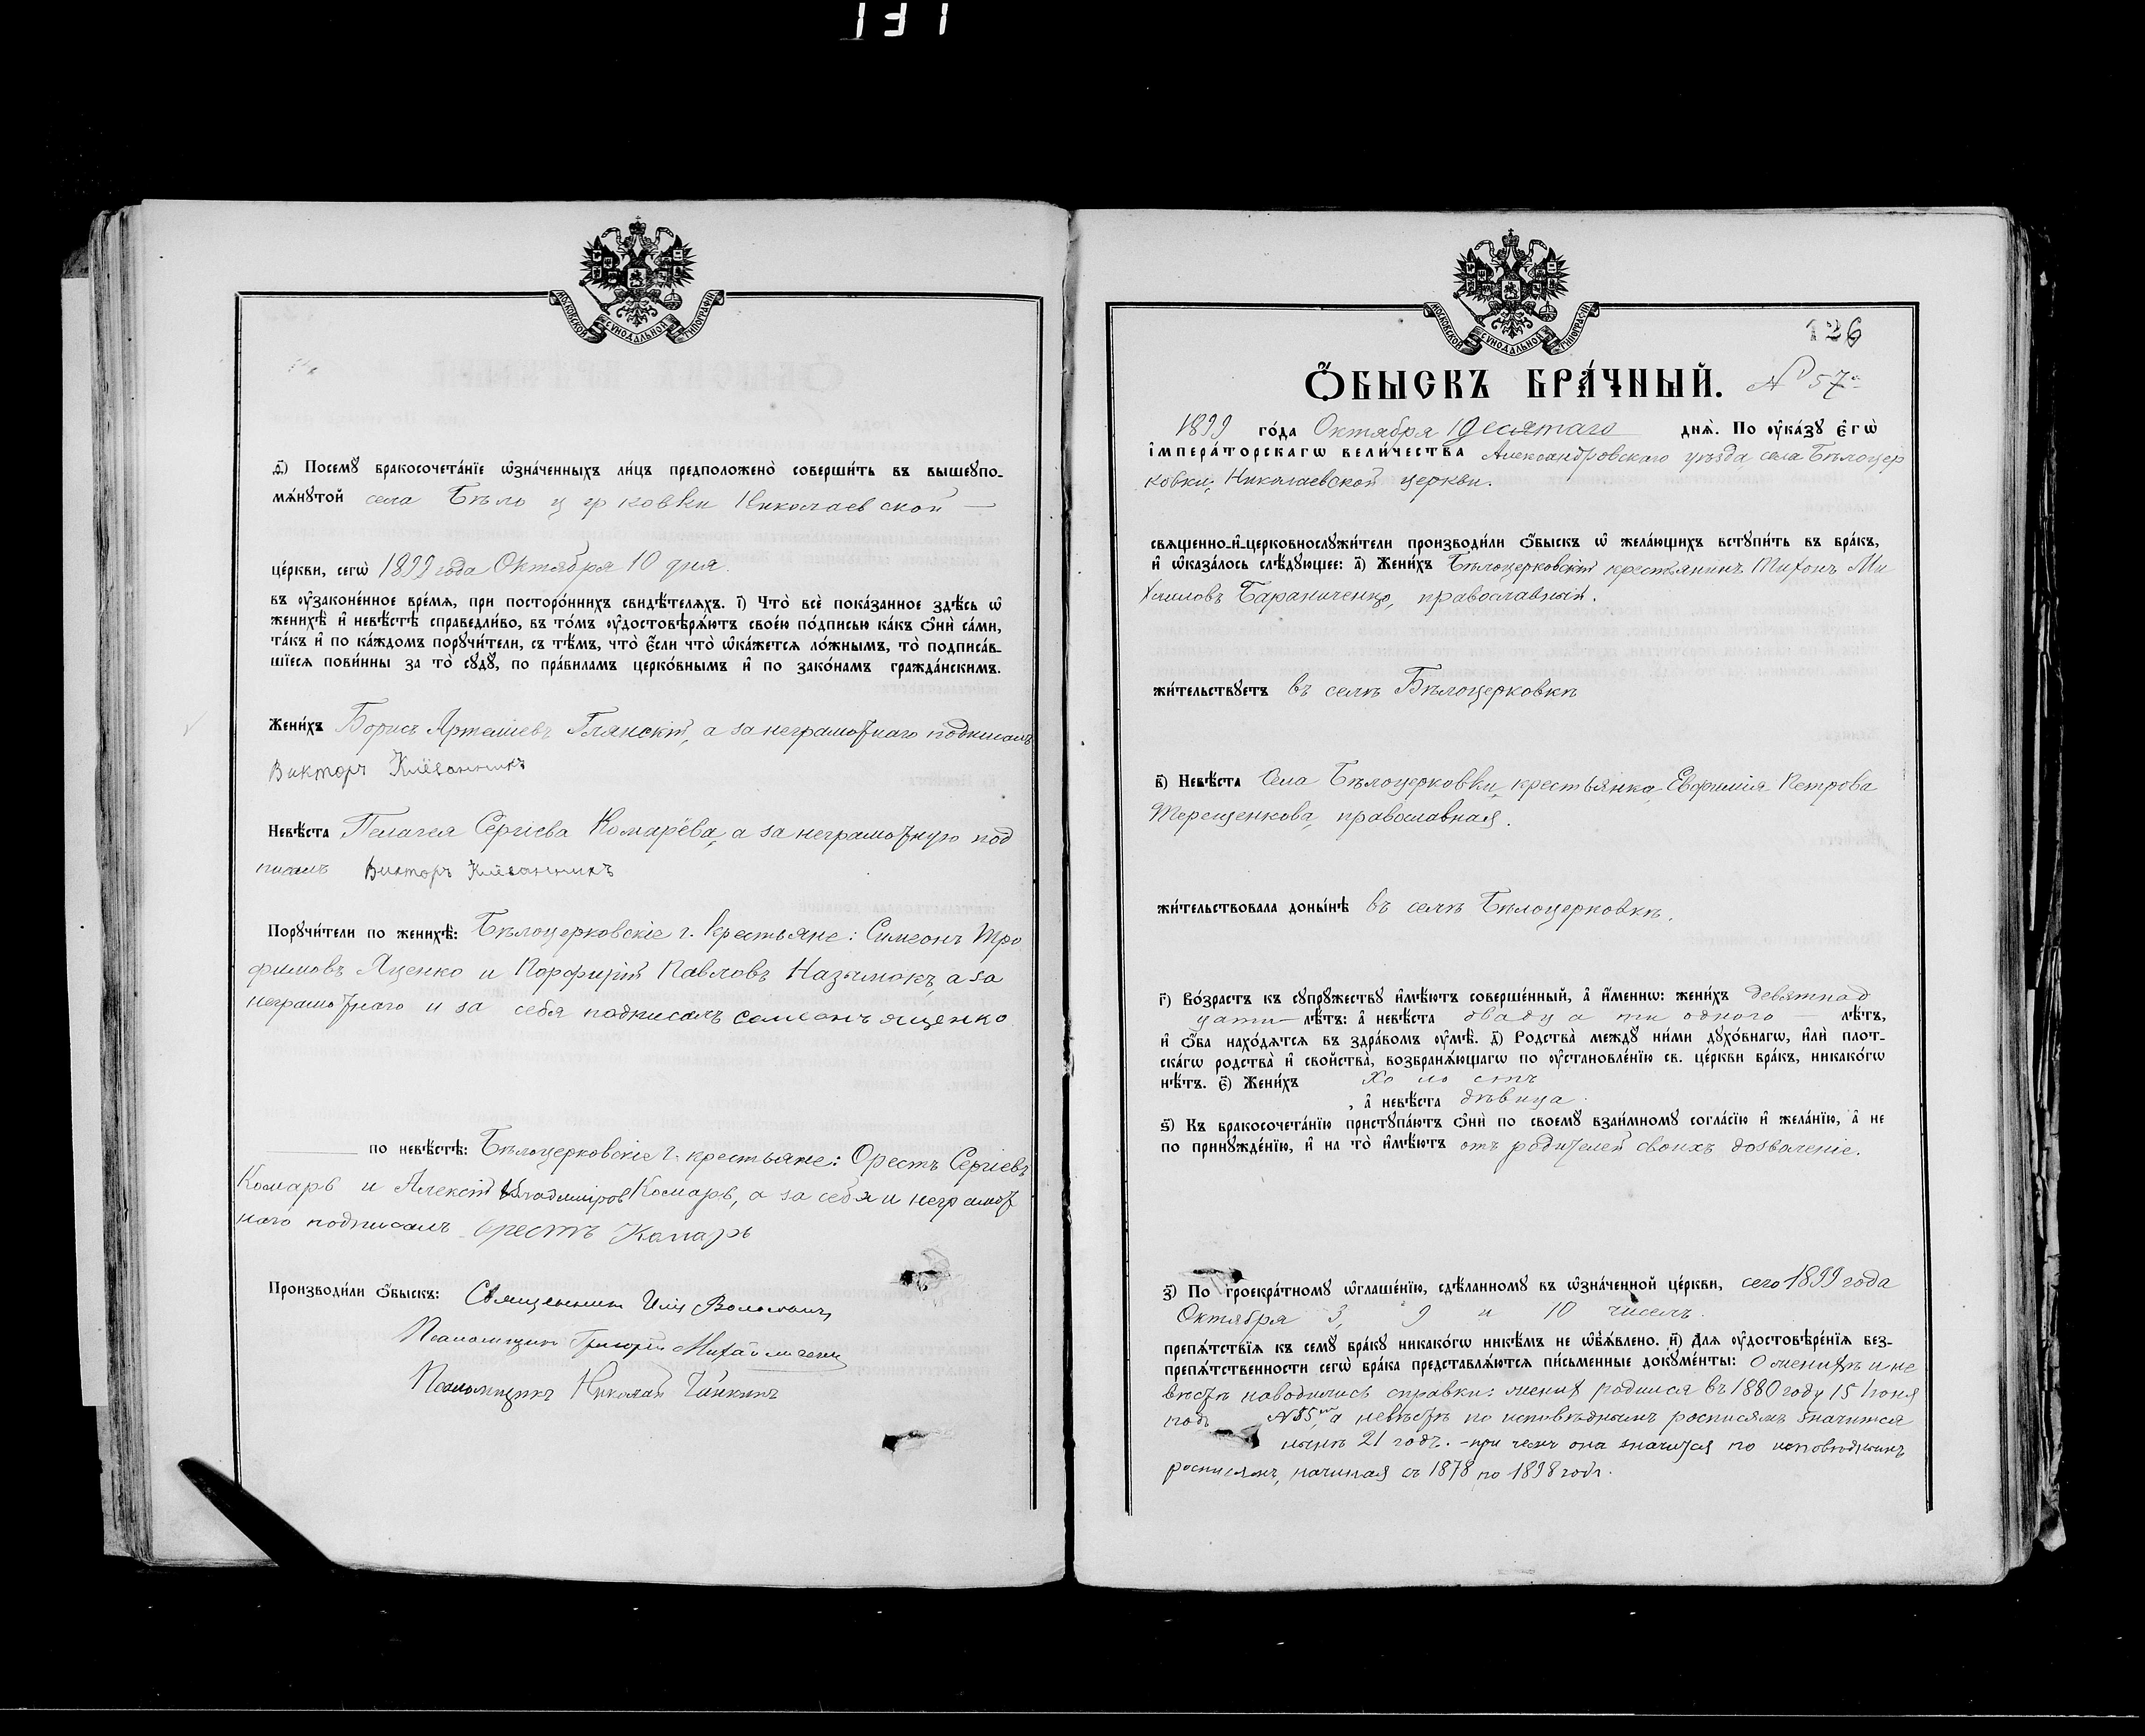 131
МОСКОВСКОЙ СѴНОДАЛЬНОЙ ТИПОГРАФІИ
ѳ҃) Посемꙋ бракосочета́нїе ѡ҆зна́ченныхъ ли́цъ предположено̀ соверши́ть въ вышеꙋпо-
мѧ́нꙋтой села Бѣлоцерковки Николаевской —
це́ркви, сегѡ̀ 1899 года Октября 10 дня.
въ ᲂу҆законе́нное вре́мѧ, при посторо́ннихъ свидѣ́телѧхъ. і҃) Что̀ всѐ пока́занное здѣ́сь ѡ҆
женихѣ̀ и҆ невѣ́стѣ справедли́во, въ то́мъ ᲂу҆достовѣрѧ́ютъ свое́ю по́дписью ка́къ ѻ҆нѝ са́ми,
та́къ и҆ по ка́ждомъ порꙋчи́тели, съ тѣ́мъ, что̀ є҆́сли что̀ ѡ҆ка́жетсѧ ло́жнымъ, то̀ подписа́в-
шїесѧ пови́нны за то̀ сꙋдꙋ̀, по пра́виламъ церко́внымъ и҆ по зако́намъ гражда́нскимъ.
Жени́хъ Борисъ Артеміевъ Глянскій, а за неграмотнаго подписалъ
Викторъ
Невѣ́ста Пелагея Сергіева Комарева, а за неграмотную под
писалъ Викторъ
Порꙋчи́тели по женихѣ̀: Бѣлоцерковскіе г. крестьяне: Симеонъ Тро
фимовъ Яценко и Порфирій Павловъ Назымокъ, а за
неграмотнаго и за себя подписалъ семенъ яценко
по невѣ́стѣ: Бѣлоцерковскіе г. крестьяне: Орестъ Сергіевъ
Комарь и Алексій Владиміров Комарь, а за себя и неграмот
наго подписалъ Орестъ Комарь
Производи́ли ѻ҆́быскъ: Священникъ Илія
Псаломщикъ Григорій
Псаломщикъ Николай
МОСКОВСКОЙ СѴНОДАЛЬНОЙ ТИПОГРАФІИ
126
Ѻ҆́БЫСКЪ БРА́ЧНЫЙ. № 57й
1899 го́да Октября 10 десятаго днѧ̀. По ᲂу҆ка́зꙋ є҆гѡ̀
і҆мпера́торскагѡ вели́чества Александровскаго уѣзда, села Бѣлоцер
ковки, Николаевской церкви.
свѧщенно-и҆-церковнослꙋжи́тели производи́ли ѻ҆́быскъ ѡ҆ жела́ющихъ встꙋпи́ть въ бра́къ,
и҆ ѡ҆каза́лось слѣ́дꙋющее: а҃) Жени́хъ Бѣлоцерковскій крестьянинъ Тихонъ Ми
хаиловъ Бараниченко, православный.
жи́тельствꙋетъ въ селѣ Бѣлоцерковкѣ
в҃) Невѣ́ста Села Бѣлоцерковки, крестьянка Евфимія Петрова
Терещенкова, православная.
жи́тельствовала доны́нѣ въ селѣ Бѣлоцерковкѣ.
г҃) Во́зрастъ къ сꙋпрꙋ́жествꙋ и҆мѣ́ютъ соверше́нный, а҆ и҆́меннѡ: жени́хъ девятнад
цати — лѣ́тъ: а҆ невѣ́ста двадцати одного — лѣ́тъ,
и҆ ѻ҆́ба нахо́дѧтсѧ въ здра́вомъ ᲂу҆мѣ̀. д҃) Родства̀ междꙋ̀ ни́ми дꙋхо́внагѡ, и҆лѝ плот-
ска́гѡ родства̀ и҆ свойства̀, возбранѧ́ющагѡ по ᲂу҆становле́нїю св. це́ркви бра́къ, никако́гѡ
нѣ́тъ. є҃) Жени́хъ холостъ
, а҆ невѣ́ста дѣвица.
ѕ҃) Къ бракосочета́нїю пристꙋпа́ютъ ѻ҆нѝ по своемꙋ̀ взаи́мномꙋ согла́сїю и҆ жела́нїю, а҆ не
по принꙋжде́нїю, и҆ на то̀ и҆мѣ́ютъ отъ родителей своихъ дозволеніе.
з҃) По троекра́тномꙋ ѡ҆глаше́нїю, сдѣ́ланномꙋ въ ѡ҆зна́ченной це́ркви, сего 1899 года
Октября 3, 9 и 10 чиселъ.
препѧ́тствїѧ къ семꙋ̀ бра́кꙋ никако́гѡ никѣ́мъ не ѡ҆б̾ѧ́влено. и҃) Длѧ ᲂу҆достовѣре́нїѧ без-
препѧ́тственности сегѡ̀ бра́ка представлѧ́ютсѧ пи́сьменные докꙋме́нты: О женихѣ и не
вѣстѣ наводились справки: жених родился въ 1880 году 15 Іюня
подъ №85м, а невѣстѣ по исповѣднымъ росписямъ значится
нынѣ 21 годъ. — при чемъ она значутся по исповѣднымъ
росписямъ, начиная съ 1878 по 1898 годъ.